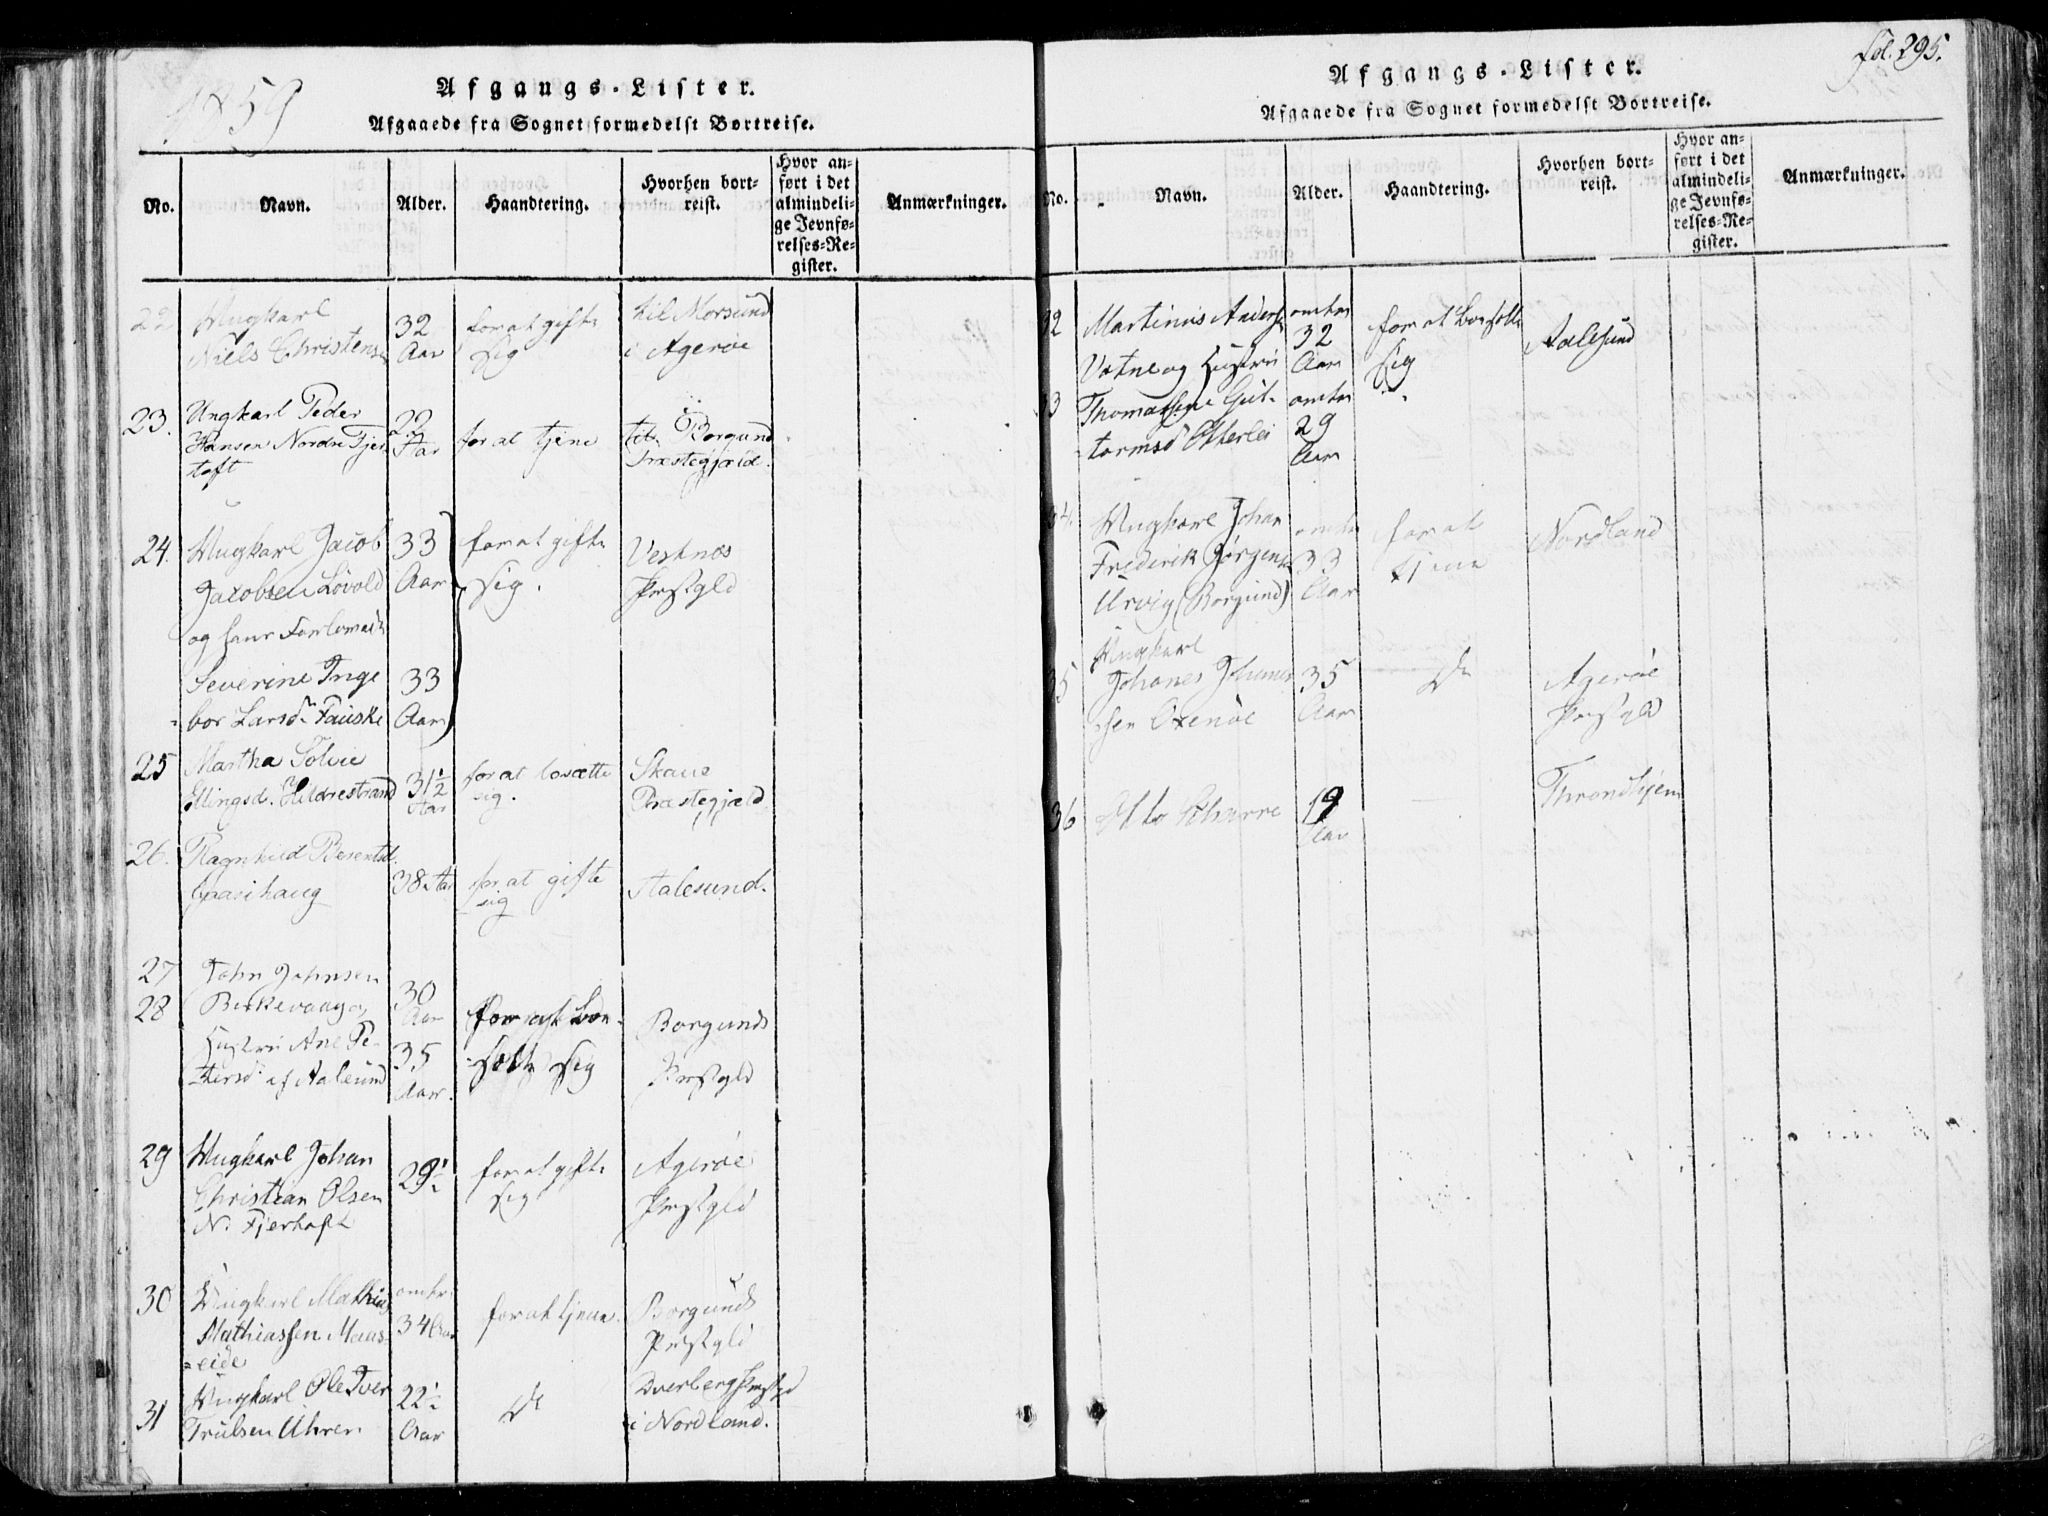 1859
Afgangs-Lister.
Afgaaede fra Sognet formedelst Bortreise.
No.
Navn.
Alder.
Haandtering.
Hvorhen bort-
reist.
Hvor an-
ført i det
almindeli-
ge Jevnfø-
relses-Re-
gister.
Anmærkninger.
22
Ungkarl
Niels Christens.
32
Aar
for at gifte
sig
til Morsund
i Agerøe
23.
Ungkarl Peder
Hansen Nordre Fjer
toft
22
Aar
for at tjene
til Borgund
Præstegjæld.
24.
Ungkarl Jacob
Jacobsen Løvold
og hans Forlovede
33
Aar
for at gifte
sig.
Vestnæs
Præstgld
Severine Inge
bor Larsd. Fauske
33
Aar
25
Martha Solvie
Ellingsd. Hildrestrand
31½
Aar
for at bosætte
sig.
Skaue
Præstegjæld
26.
Ragnhild Berentsd.
38 Aar
for at gifte
sig
Aalesund.
27
28
John Johnsen
Birkevaag og
Hustru Ane Pe-
tersd. af Aalesund
30
Aar
35
Aar.
for at bo-
sætte sig
Borgunds
Præstgld
29
Ungkarl Johan
Christian Olsen
N. Fjertoft
29½
for at gifte
sig
Agerøe
Præstgld
30
Ungkarl Mathias
Mathiassen Maas-
eide
omtr.
34 Aar
for at tjene.
Borgunds
Præstgld
31
Ungkarl Ole Iver
Trulsen Uhren
22½
Aar
Do
Dverberg Præstgld
i Nordland.
Afgangs-Lister.
Fol. 295.
Afgaaede fra Sognet formedelst Bortreise.
No.
Navn.
Alder.
Haandtering.
Hvorhen bort-
reist.
Hvor an-
ført i det
almindeli-
ge Jevnfø-
relses-Re-
gister.
Anmærkninger.
32
Martinus Anders.
Vatne og Hustru
omtr
32
Aar
for at bosætte
sig
Aalesund
33
Thomassine Gut-
tormsd. Otterlei
omtr
29
Aar
"
34.
Ungkarl Johan
Frederik Jørgens.
Urvig (Borgund)
omtr
33
Aar
for at
tjene
Nordland
35
Ungkarl
Johanes Johannes
sen Oxenøe
35
Aar
Do
Agerøe
Præstgld
36
Otto
19
Aar
Throndhjem